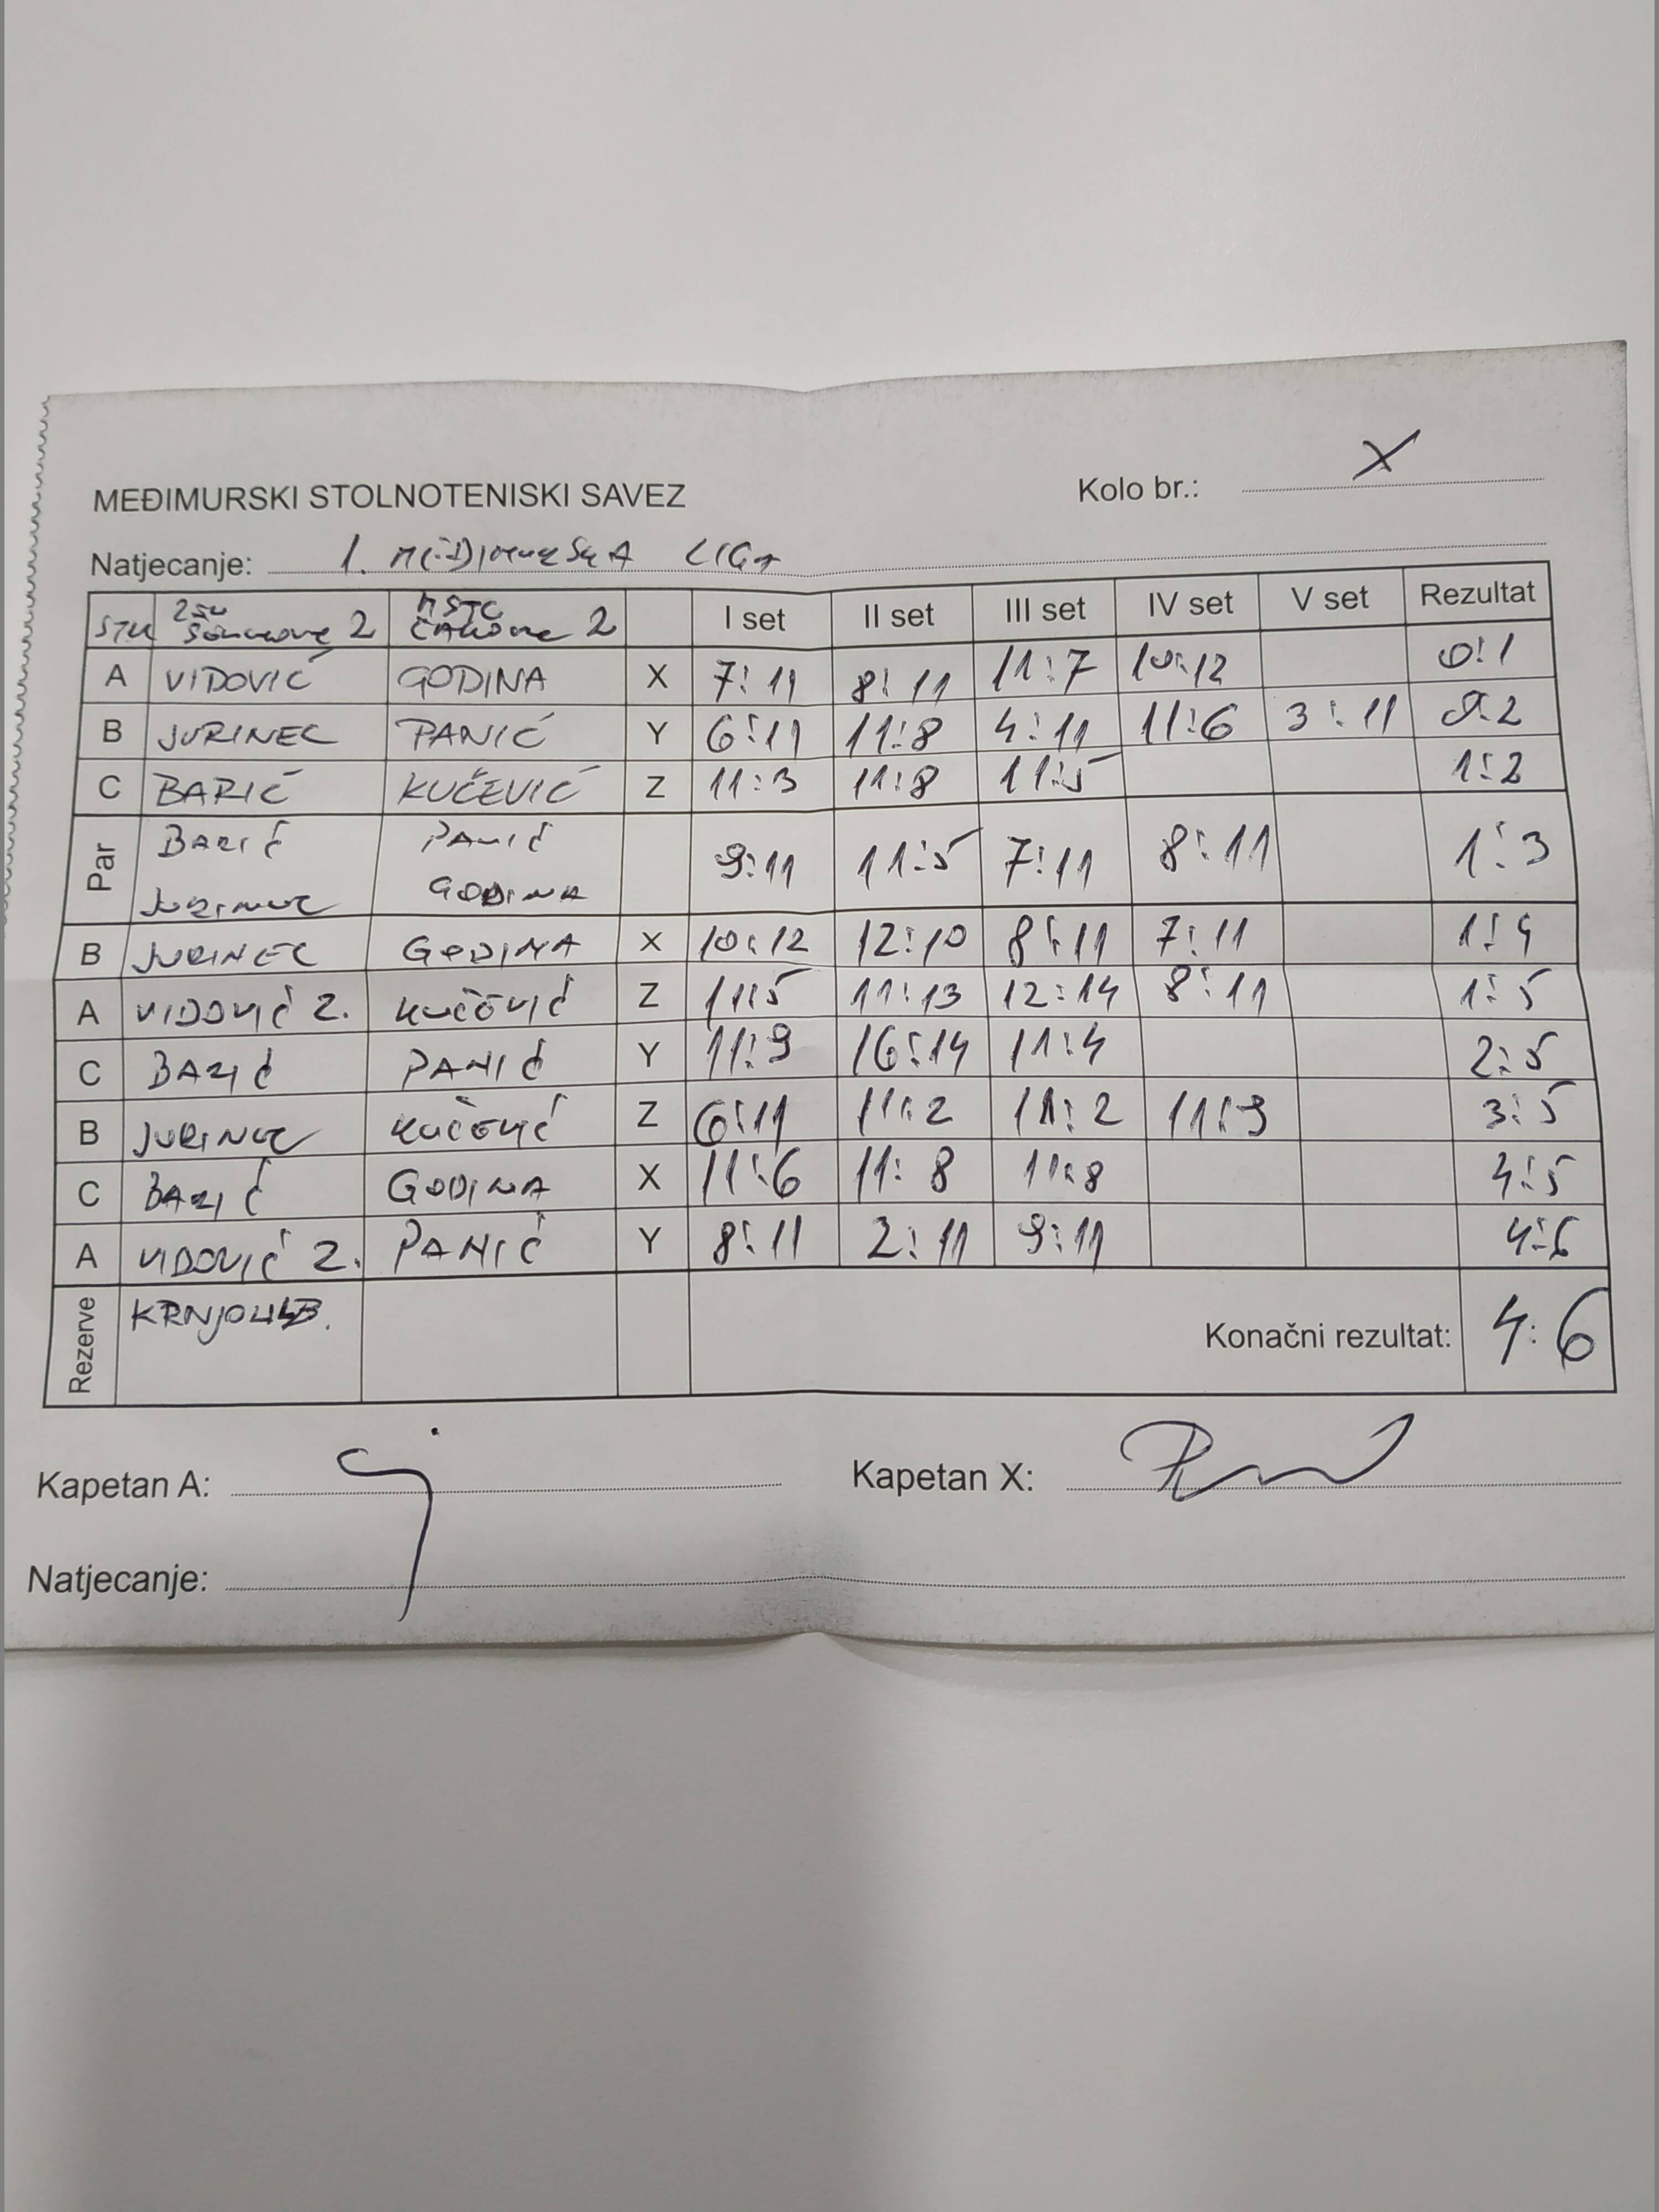 MEĐIMURSKI STOLNOTENISKI SAVEZ
Kolo br.: X
Natjecanje: 1. MEĐIMURSKA LIGA
STK 2 MSTC ČAKOVEC 2 I set II set III set IV set V set Rezultat
A VIDOVIĆ GODINA X 7:11 8:11 11:7 10:12 0:1
B JURINEC PANIĆ Y 6:11 11:8 4:11 11:6 3:11 0:2
C BARIĆ KUČEVIĆ Z 11:3 11:8 11:5 1:2
Par BARIĆ PANIĆ 9:11 11:5 7:11 8:11 1:3
JURINEC GODINA
B JURINEC GODINA X 10:12 12:10 8:11 7:11 1:4
A VIDOVIĆ Z. KUČEVIĆ Z 11:5 11:13 12:14 8:11 1:5
C BARIĆ PANIĆ Y 11:9 16:14 11:4 2:5
B JURINEC KUČEVIĆ Z 6:11 11:2 11:2 11:9 3:5
C BARIĆ GODINA X 11:6 11:8 11:8 4:5
A VIDOVIĆ Z. PANIĆ Y 8:11 2:11 9:11 4:6
Rezerve Konačni rezultat: 4:6
Kapetan A:
Kapetan X:
Natjecanje: